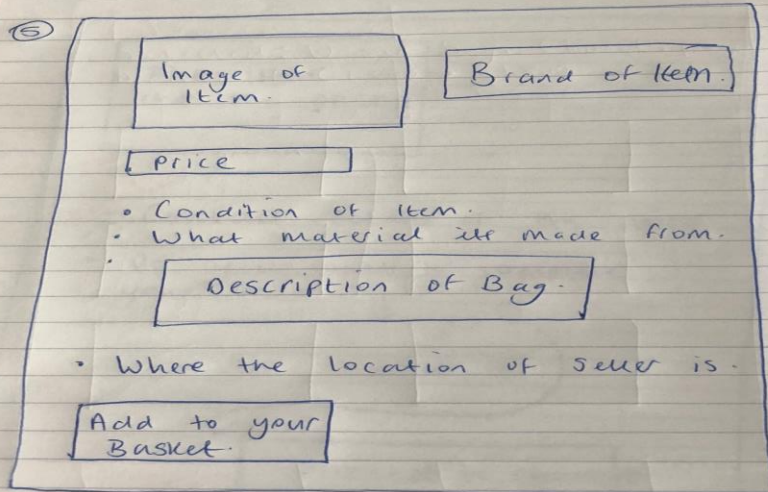 5
Image of
Item.
Brand of Item.
Price
• Condition of Item.
• What material its made from.
•
Description of Bag.
• Where the location of seller is.
Add to your
Basket.